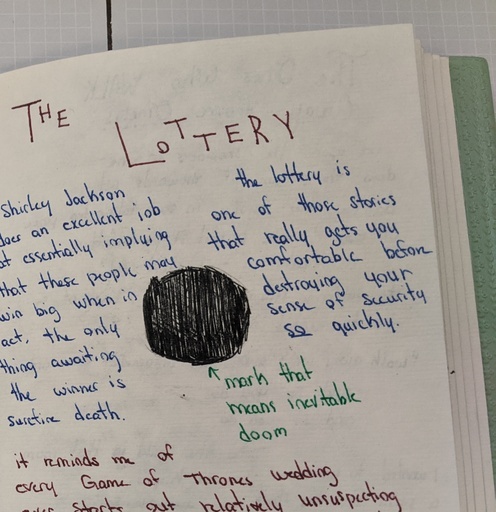 THE
LOTTERY
Shirley Jackson
does an excellent job
at essentially implying
that these people may
win big when in
act, the only
thing awaiting
the winner is
surefire death.
the lottery is
one of those stories
that really gets you
comfortable before
destroying your
sense of security
so quickly.
mark that
means inevitable
doom
it reminds me of
every Game of Thrones wedding
ever. Starts out relatively unsuspecting